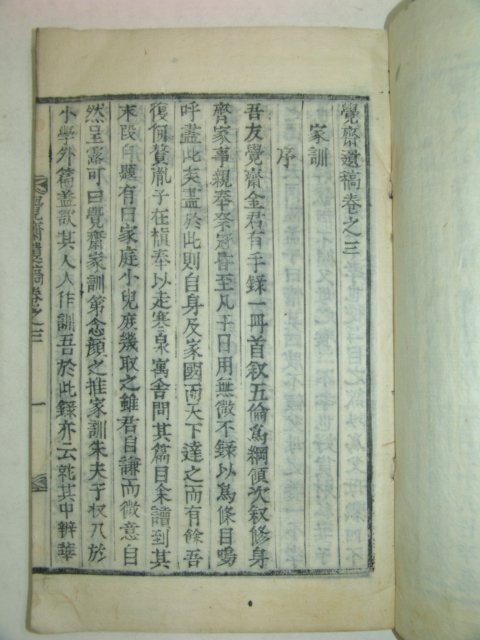 覺齋遺稿卷之三
家訓
序
吾友覺齋金君有手錄一冊首叙五倫爲綱領次叙修身
齊家事親奉祭冠昏至凡干日用無微不錄以爲條目嗚
呼盡此矣盡於此則自身及家國而天下達之而有餘吾
復何贅胤子在楨奉以走寒泉寓舍問其篇目余讀到其
末段自題有曰家庭小兒庶幾取之雖君自謙而微意自
然呈露可曰覺齋家訓第念顔之推家訓朱夫子收入於
小學外篇盖欲其人人作訓吾於此錄亦云就其中辨華
覺齋遺稿卷之三
一